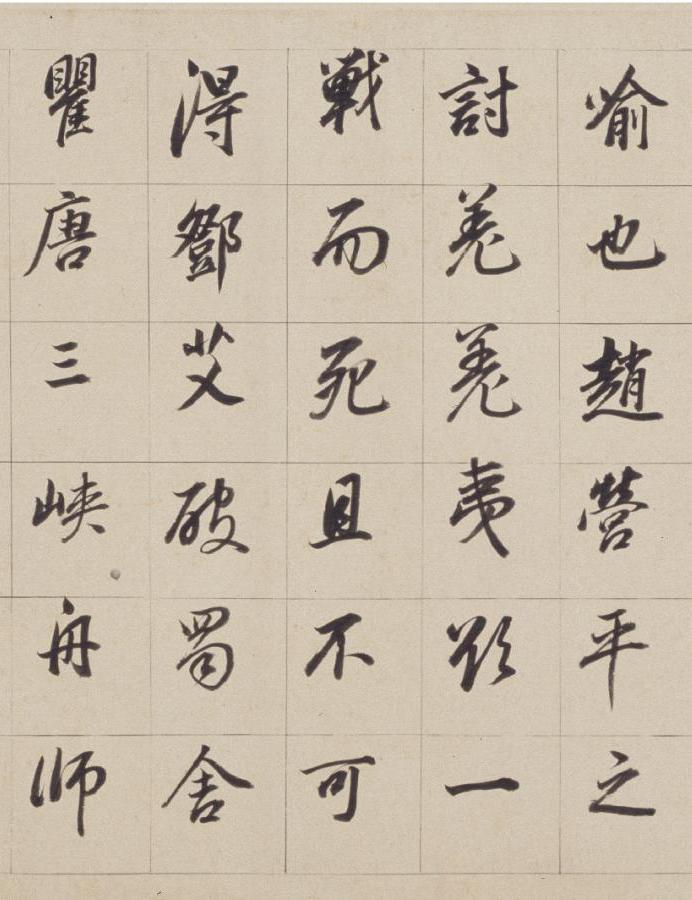 喻也趙營平之
討羌羌夷欲一
戰而死且不可
得鄧艾破蜀舍
瞿唐三峽舟師